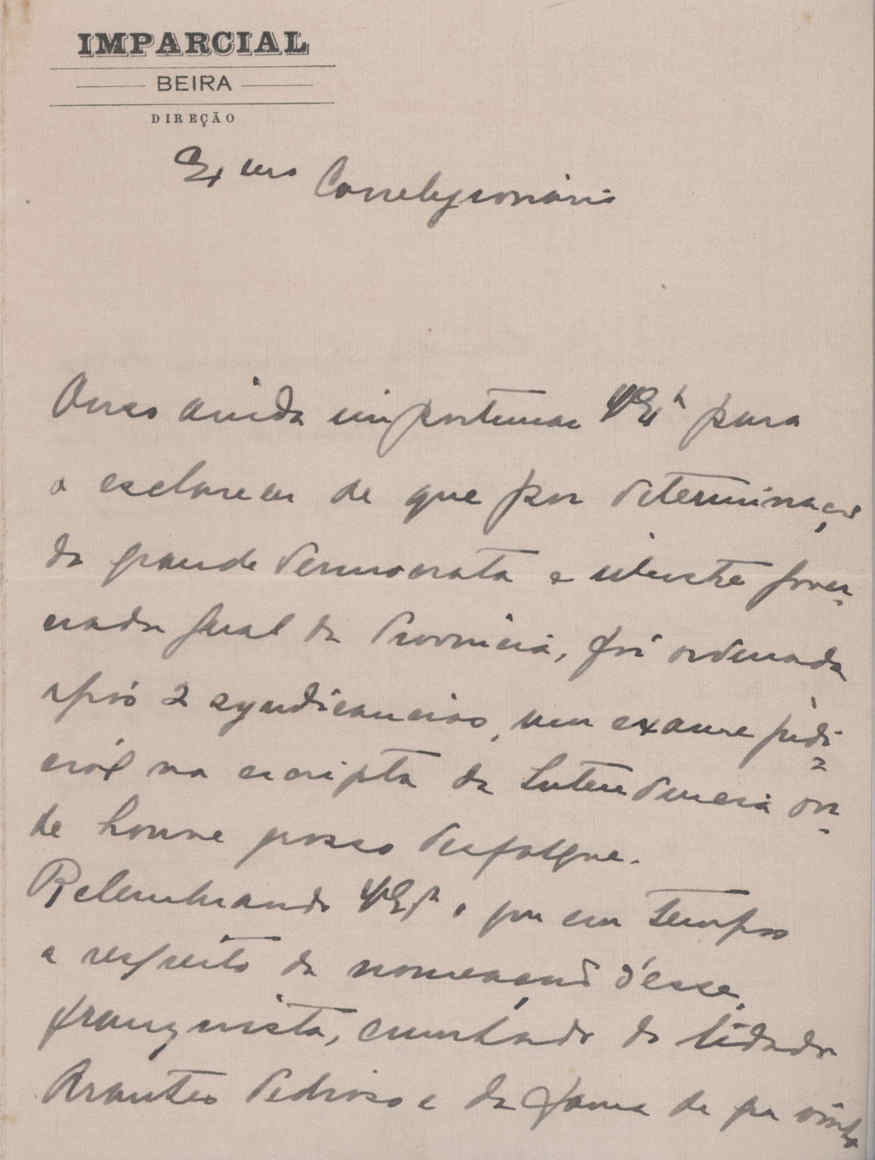 IMPARCIAL
BEIRA
DIREÇÃO
Exmo Correlegionário
Ouso ainda importunar VExª para
o esclarecer de que por determinação
do grande democrata e ilustre Gover-
nador Geral da Provincia, foi ordenada
após 2 syndicancias, um exame judi-
cial na escripta da Intendencia on-
de houve grosso desfalque.
Relembrando VExª o que em tempos
a respeito da nomeação d'esse
franquista, cunhado do
Arantes Pedroso e da fama de que vinha